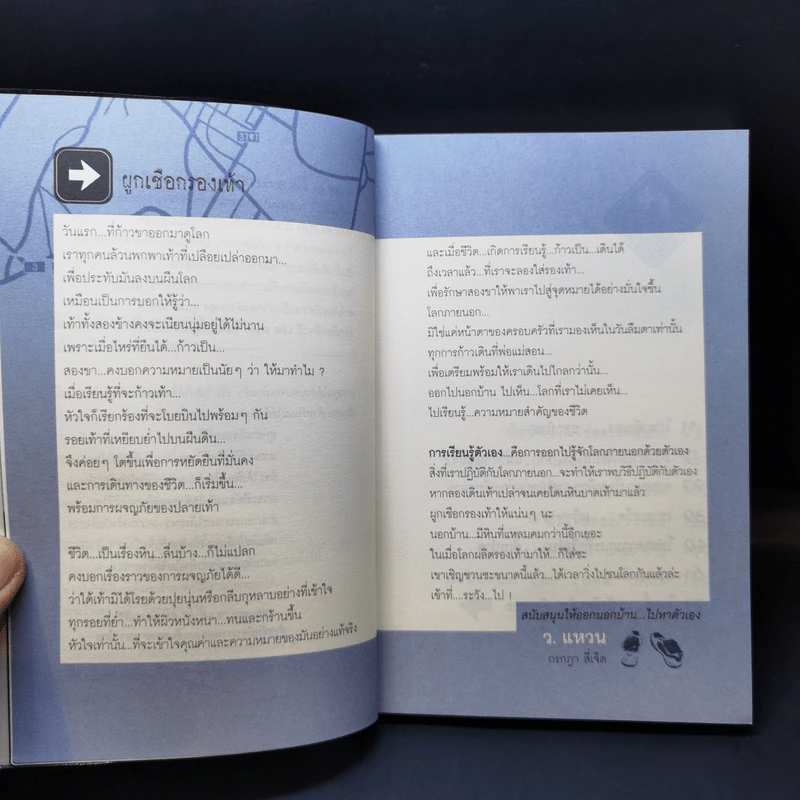 ผูกเชือกรองเท้า
วันแรก...ที่ก้าวขาออกมาดูโลก
เราทุกคนล้วนพกพาเท้าที่เปลือยเปล่าออกมา...
เพื่อประทับมันลงบนผืนโลก
เหมือนเป็นการบอกให้รู้ว่า...
เท้าทั้งสองข้างคงจะเนียนนุ่มอยู่ได้ไม่นาน
เพราะเมื่อไหร่ที่ยืนได้...ก้าวเป็น...
สองขา...คงบอกความหมายเป็นนัยๆ ว่า ให้มาทำไม ?
เมื่อเรียนรู้ที่จะก้าวเท้า...
หัวใจก็เรียกร้องที่จะโบยบินไปพร้อมๆ กัน
รอยเท้าที่เหยียบย่ำไปบนผืนดิน...
จึงค่อยๆ โตขึ้นเพื่อการหยัดยืนที่มั่นคง
และการเดินทางของชีวิต...ก็เริ่มขึ้น...
พร้อมการผจญภัยของปลายเท้า
ชีวิต...เป็นเรื่องหิน...ลื่นบ้าง...ก็ไม่แปลก
คงบอกเรื่องราวของการผจญภัยได้ดี...
ว่าใต้เท้ามิได้โรยด้วยปุยนุ่นหรือกลีบกุหลาบอย่างที่เข้าใจ
ทุกรอยที่ย่ำ...ทำให้ผิวหนังหนา...ทนและกร้านขึ้น
หัวใจเท่านั้น...ที่จะเข้าใจคุณค่าและความหมายของมันอย่างแท้จริง
และเมื่อชีวิต...เกิดการเรียนรู้...ก้าวเป็น...เดินได้
ถึงเวลาแล้ว...ที่เราจะลองใส่รองเท้า...
เพื่อรักษาสองขาให้พาเราไปสู่จุดหมายได้อย่างมั่นใจขึ้น
โลกภายนอก...
มิใช่แค่หน้าตาของครอบครัวที่เรามองเห็นในวันลืมตาเท่านั้น
ทุกการก้าวเดินที่พ่อแม่สอน...
เพื่อเตรียมพร้อมให้เราเดินไปไกลกว่านั้น...
ออกไปนอกบ้าน ไปเห็น...โลกที่เราไม่เคยเห็น...
ไปเรียนรู้...ความหมายสำคัญของชีวิต
การเรียนรู้ตัวเอง...คือการออกไปรู้จักโลกภายนอกด้วยตัวเอง
สิ่งที่เราปฏิบัติกับโลกภายนอก...จะทำให้เราพบวิธีปฏิบัติกับตัวเอง
หากลองเดินเท้าเปล่าจนเคยโดนหินบาดเท้ามาแล้ว
ผูกเชือกรองเท้าให้แน่นๆ นะ
นอกบ้าน...มีหินที่แหลมคมกว่านี้อีกเยอะ
ในเมื่อโลกผลิตรองเท้ามาให้...ก็ใส่ซะ
เขาเชิญชวนซะขนาดนี้แล้ว...ได้เวลาวิ่งไปชนโลกกันแล้วล่ะ
เข้าที่....ระวัง...ไป !
สนับสนุนให้ออกนอกบ้าน...ไปหาตัวเอง
ว. แหวน
กรกฎา สี่เจ็ด